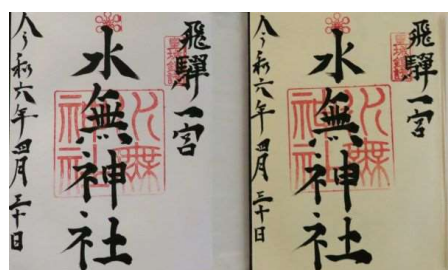 飛驒一宮
水無神社
令和六年四月三十日
飛驒一宮
水無神社
令和六年四月三十日